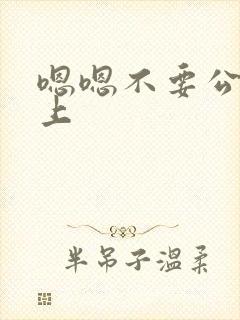 嗯嗯不要公
上
半吊子温柔